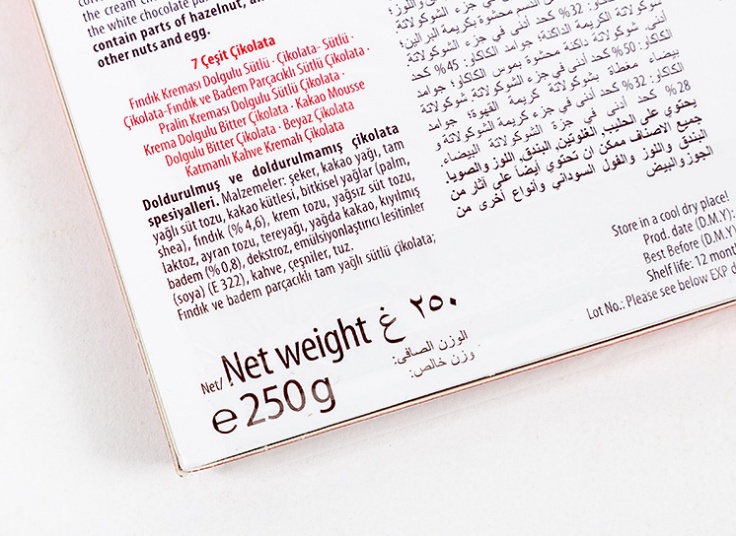 the cream
the white chocolate
contain parts of hazelnut,
other nuts and egg.
7 Çeşit Çikolata
Fındık Kreması Dolgulu Sütlü · Çikolata- Sütlü ·
Çikolata-Fındık ve Badem Parçacıklı Sütlü Çikolata ·
Pralin Kreması Dolgulu Sütlü Çikolata ·
Krema Dolgulu Bitter Çikolata · Kakao Mousse
Dolgulu Bitter Çikolata · Beyaz Çikolata
Katmanlı Kahve Kremalı Çikolata
Doldurulmuş ve doldurulmamış çikolata
spesiyalleri. Malzemeler: şeker, kakao yağı, tam
yağlı süt tozu, kakao kütlesi, bitkisel yağlar (palm,
shea), fındık (% 4,6), krem tozu, yağsız süt tozu,
laktoz, ayran tozu, tereyağı, yağda kakao, kıyılmış
badem (% 0,8), dekstroz, emülsiyonlaştırıcı lesitinler
(soya) (E 322), kahve, çeşniler, tuz.
Fındık ve badem parçacıklı tam yağlı sütlü çikolata;
شوكولاتة الكريمة الداكنة؛ جوامد الكاكاو: 45% كحد
أدنى، شوكولاتة داكنة محشوة بموس الكاكاو؛ جوامد
الكاكاو: 50% كحد أدنى في جزء الشوكولاتة، شوكولاتة
بيضاء مغطاة بشوكولاتة كريمة القهوة؛ جوامد
الكاكاو: 32% كحد أدنى في جزء الشوكولاتة و
28% كحد أدنى في جزء الشوكولاتة البيضاء.
يحتوي على الحليب، الغلوتين، البندق، اللوز والصويا.
جميع الاصناف ممكن ان تحتوي ايضاً على آثار من
البندق واللوز والفول السوداني وأنواع أخرى من
الجوز والبيض
Store in a cool dry place!
Prod. date (D.M.Y):
Best Before (D.M.Y)
Shelf life: 12 mont
Lot No.: Please see below EXP d
Net/ Net weight ٢٥٠ غ
℮ 250 g
الوزن الصافي:
وزن خالص: